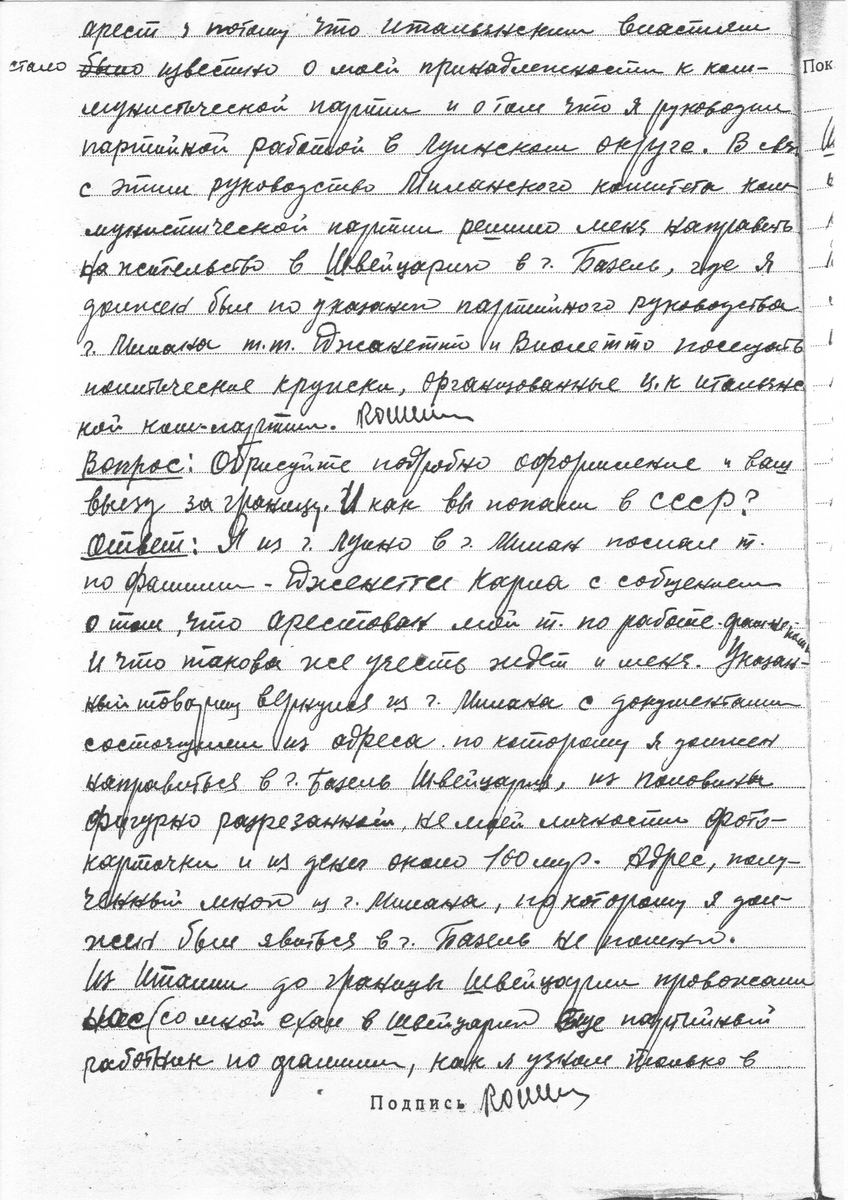 арест и потому что итальянским властям
стало было известно о моей принадлежности к ком-
мунистической партии и о том что я руководил
партийной работой в Луинском округе. В свя
с этим руководство Миланского комитета ком
мунистической партии решило меня направить
на жительство в Швейцарию в г. Базель, где я
должен был по указанию партийного руководства
г. Милана т.т. Джанетто и Виолетто посещать
политические кружки, организованные Ц.К итальянс
кой ком-партии. Rossi
Вопрос: Обрисуйте подробно оформление и ваш
выезд за границу. И как вы попали в СССР?
Ответ: Я из г. Луино в г. Милан послал т.
по фамилии - Дженетти Карла с собщением
о том, что арестован мой т. по работе
и что такова же участь ждет и меня. Указан-
ный товарищ вернулся из г. Милана с документами
состоящими из адреса по которому я должен
направиться в г. Базель Швейцария, из половины
фигурно разрезанной, не моей личности фото-
карточки и из денег около 160 лир. Адрес, полу-
ченный мной из г. Милана, по которому я дол-
жен был явиться в г. Базель не помню.
Из Италии до границы Швейцарии провожали
нас (со мной ехал в Швейцарию еще партийный
работник по фамилии, как я узнал только в
Подпись
Пок